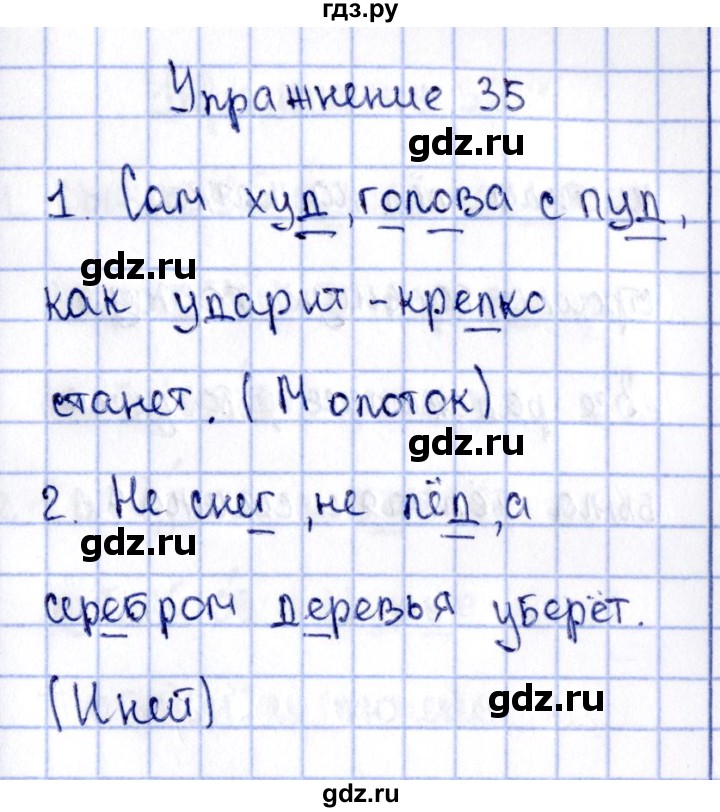 гдз.ру
Упражнение 35
gdz.ru
1. Сам худ, голова с пуд,
gdz.ru
как ударит - крепко
станет. (Молоток)
gdz.ru
2. Не снег, не лёд, а
gdz.ru
серебром деревья уберёт.
gdz.ru
(Иней)
gdz.ru